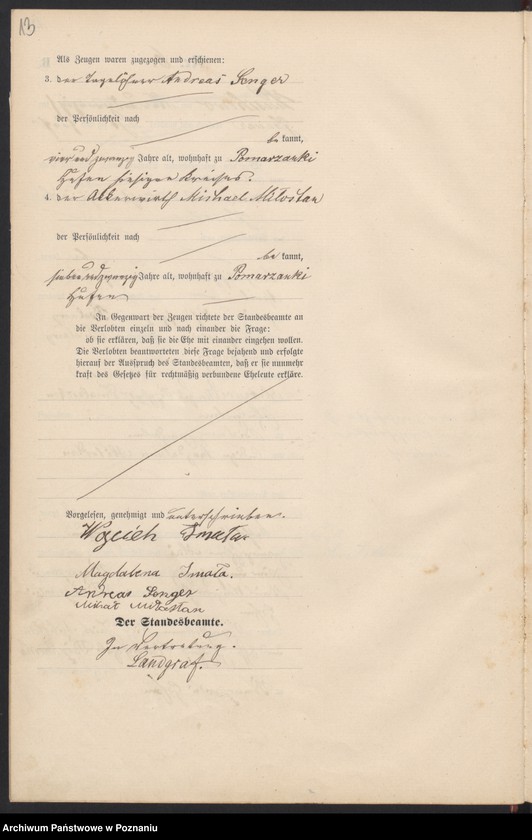 13
Als Zeugen waren zugezogen und erschienen:
3. der Tagelöhner Andreas Senger
der Persönlichkeit nach
be kannt,
vierundzwanzig Jahre alt, wohnhaft zu Pomarzanki
Hufen hiesigen Kreises.
4. der Ackerwirth Michael Miłostan
der Persönlichkeit nach
be kannt,
siebenundzwanzig Jahre alt, wohnhaft zu Pomarzanki
Hufen
In Gegenwart der Zeugen richtete der Standesbeamte an
die Verlobten einzeln und nach einander die Frage:
ob sie erklären, daß sie die Ehe mit einander eingehen wollen.
Die Verlobten beantworteten diese Frage bejahend und erfolgte
hierauf der Ausspruch des Standesbeamten, daß er sie nunmehr
kraft des Gesetzes für rechtmäßig verbundene Eheleute erkläre.
Vorgelesen, genehmigt und unterschrieben.
Magdalena
Andreas Senger
Der Standesbeamte.
In Vertretung.
Landgraf.
Archiwum Państwowe w Poznaniu